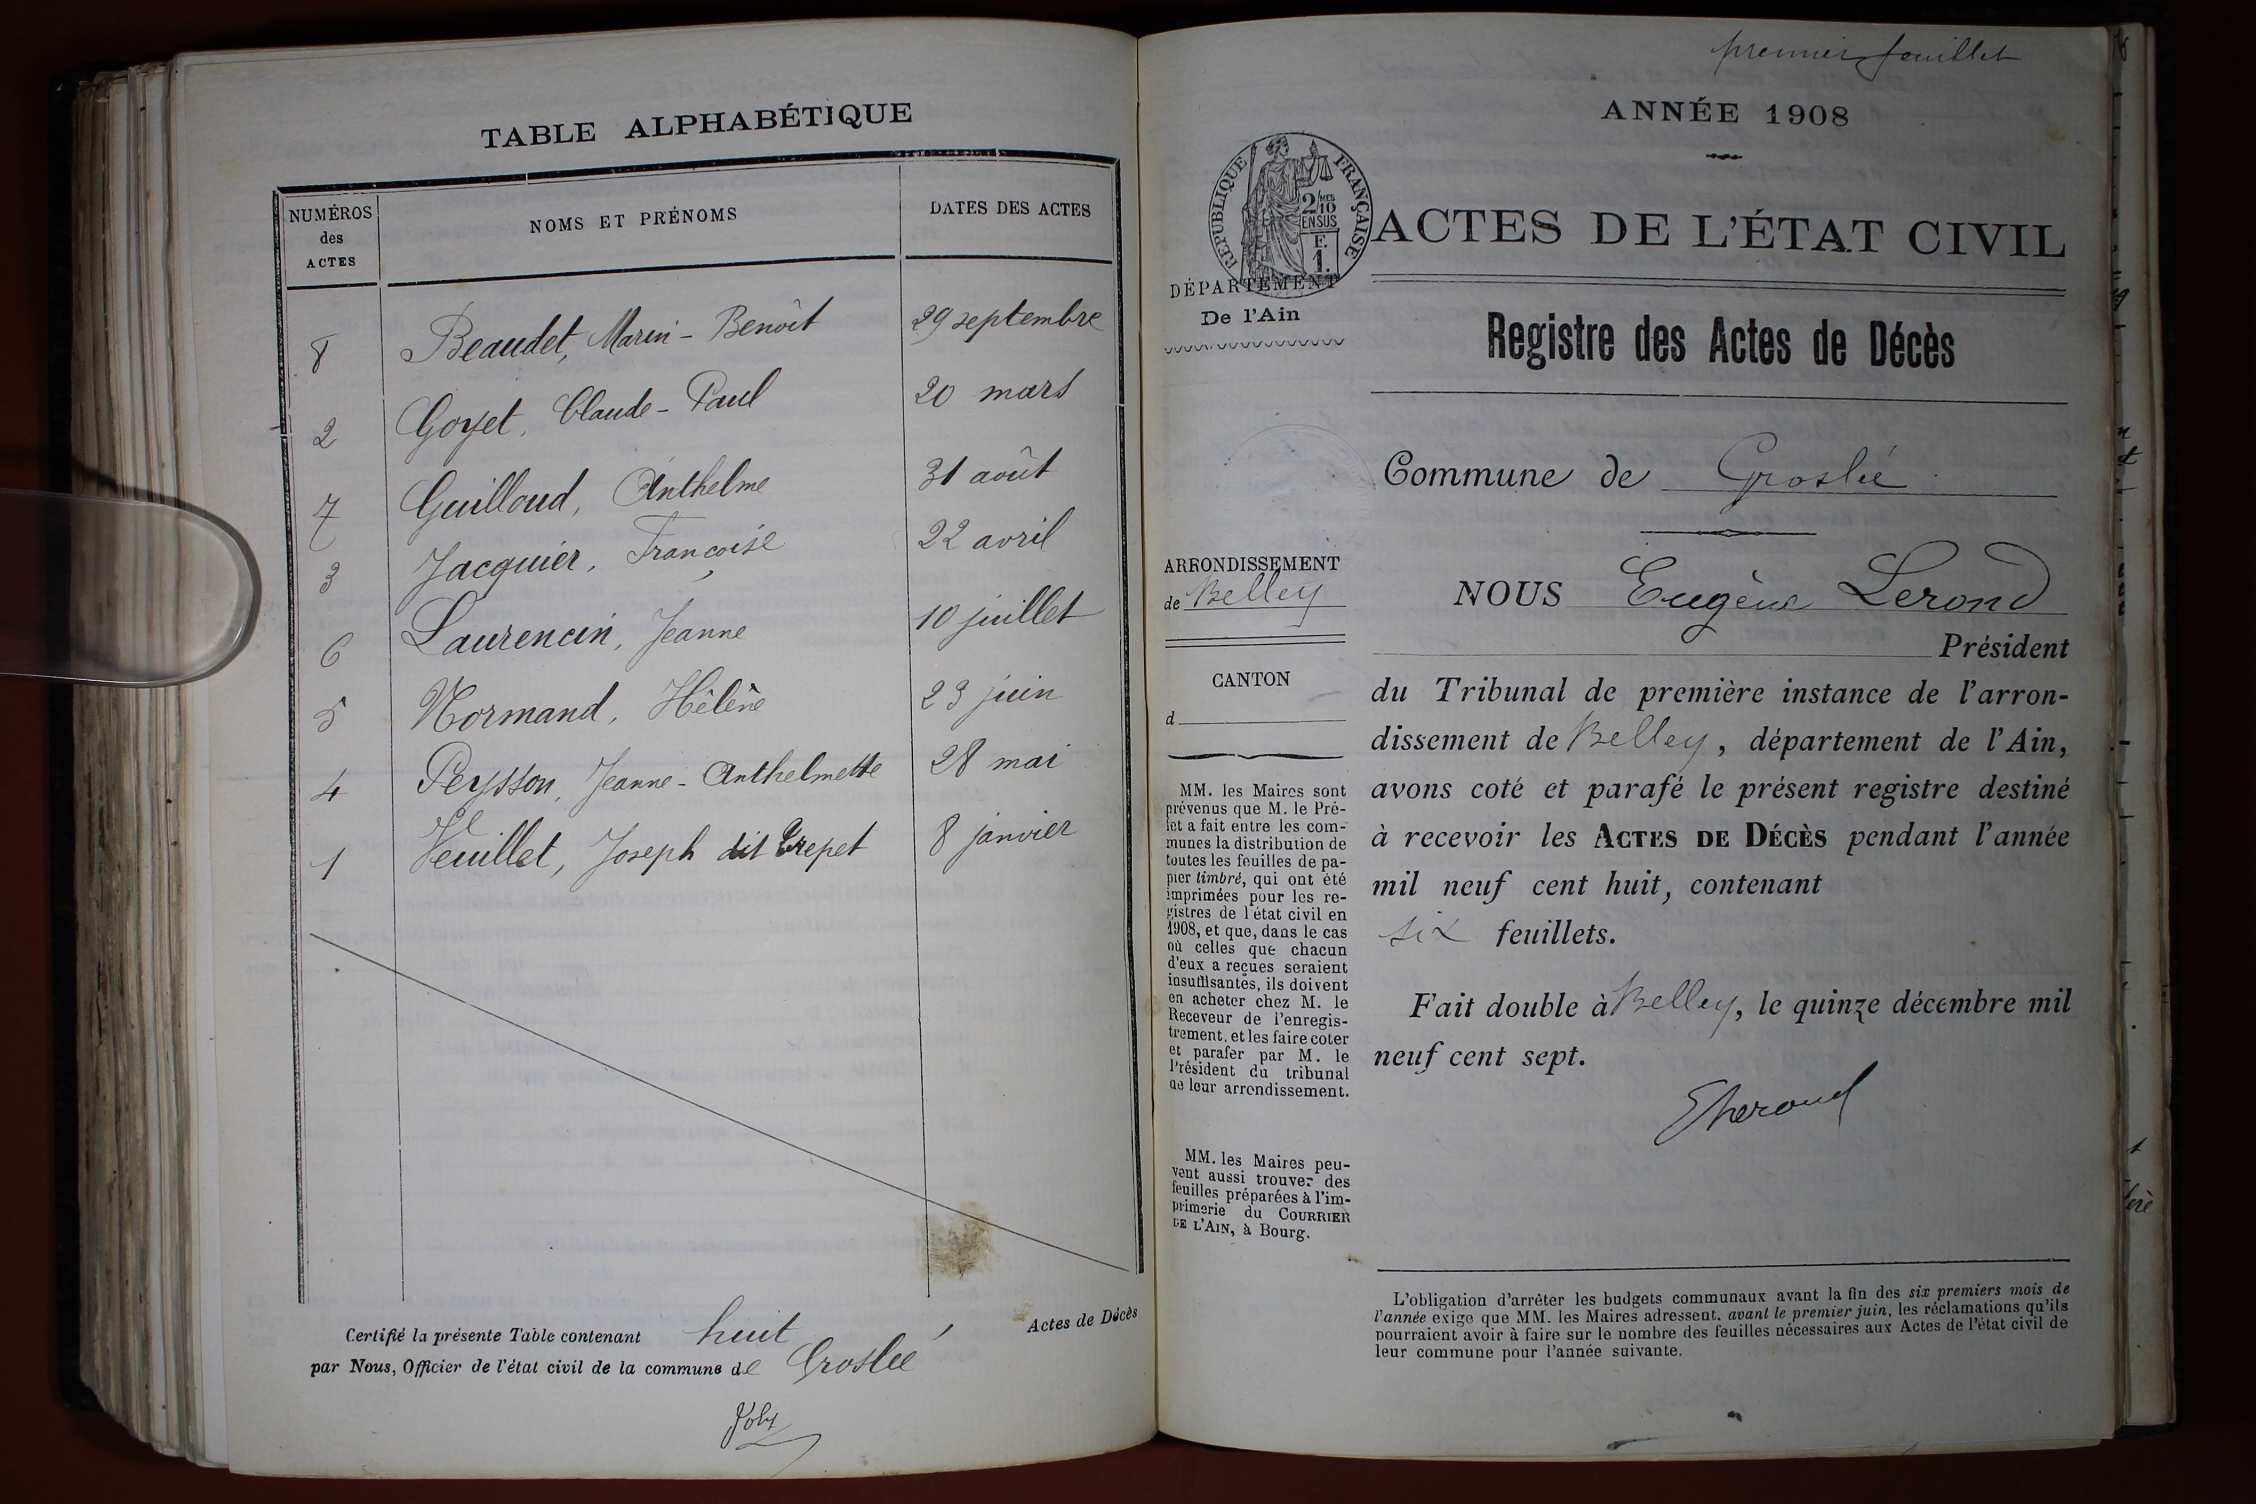 TABLE ALPHABÉTIQUE
NUMÉROS des ACTES NOMS ET PRÉNOMS DATES DES ACTES
8 Beaudet, Marin-Benoît 29 septembre
2 Goyet, Claude-Paul 20 mars
7 Guilloud, Anthelme 31 août
3 Jacquier, Françoise 22 avril
6 Laurencin, Jeanne 10 juillet
5 Normand, Hélène 23 juin
4 Peysson, Jeanne-Anthelmette 28 mai
1 Veuillet, Joseph dit Trepet 8 janvier
Certifié la présente Table contenant huit Actes de Décès
par Nous, Officier de l'état civil de la commune de Groslée
Joly
premier feuillet
ANNÉE 1908
RÉPUBLIQUE FRANÇAISE
2/10 MES
EN SUS
F.
1.
ACTES DE L'ÉTAT CIVIL
DÉPARTEMENT
De l'Ain
Registre des Actes de Décès
Commune de Groslée
ARRONDISSEMENT
de Belley
CANTON
d
MM. les Maires sont
prévenus que M. le Pré-
fet a fait entre les com-
munes la distribution de
toutes les feuilles de pa-
pier timbré, qui ont été
imprimées pour les re-
gistres de l'état civil en
1908, et que, dans le cas
où celles que chacun
d'eux a reçues seraient
insuffisantes, ils doivent
en acheter chez M. le
Receveur de l'enregis-
trement, et les faire coter
et parafer par M. le
Président du tribunal
de leur arrondissement.
MM. les Maires peu-
vent aussi trouver des
feuilles préparées à l'im-
primerie du COURRIER
DE L'AIN, à Bourg.
NOUS Eugène Lerond
Président
du Tribunal de première instance de l'arron-
dissement de Belley, département de l'Ain,
avons coté et parafé le présent registre destiné
à recevoir les ACTES DE DÉCÈS pendant l'année
mil neuf cent huit, contenant
six feuillets.
Fait double à Belley, le quinze décembre mil
neuf cent sept.
ELerond
L'obligation d'arrêter les budgets communaux avant la fin des six premiers mois de
l'année exige que MM. les Maires adressent, avant le premier juin, les réclamations qu'ils
pourraient avoir à faire sur le nombre des feuilles nécessaires aux Actes de l'état civil de
leur commune pour l'année suivante.